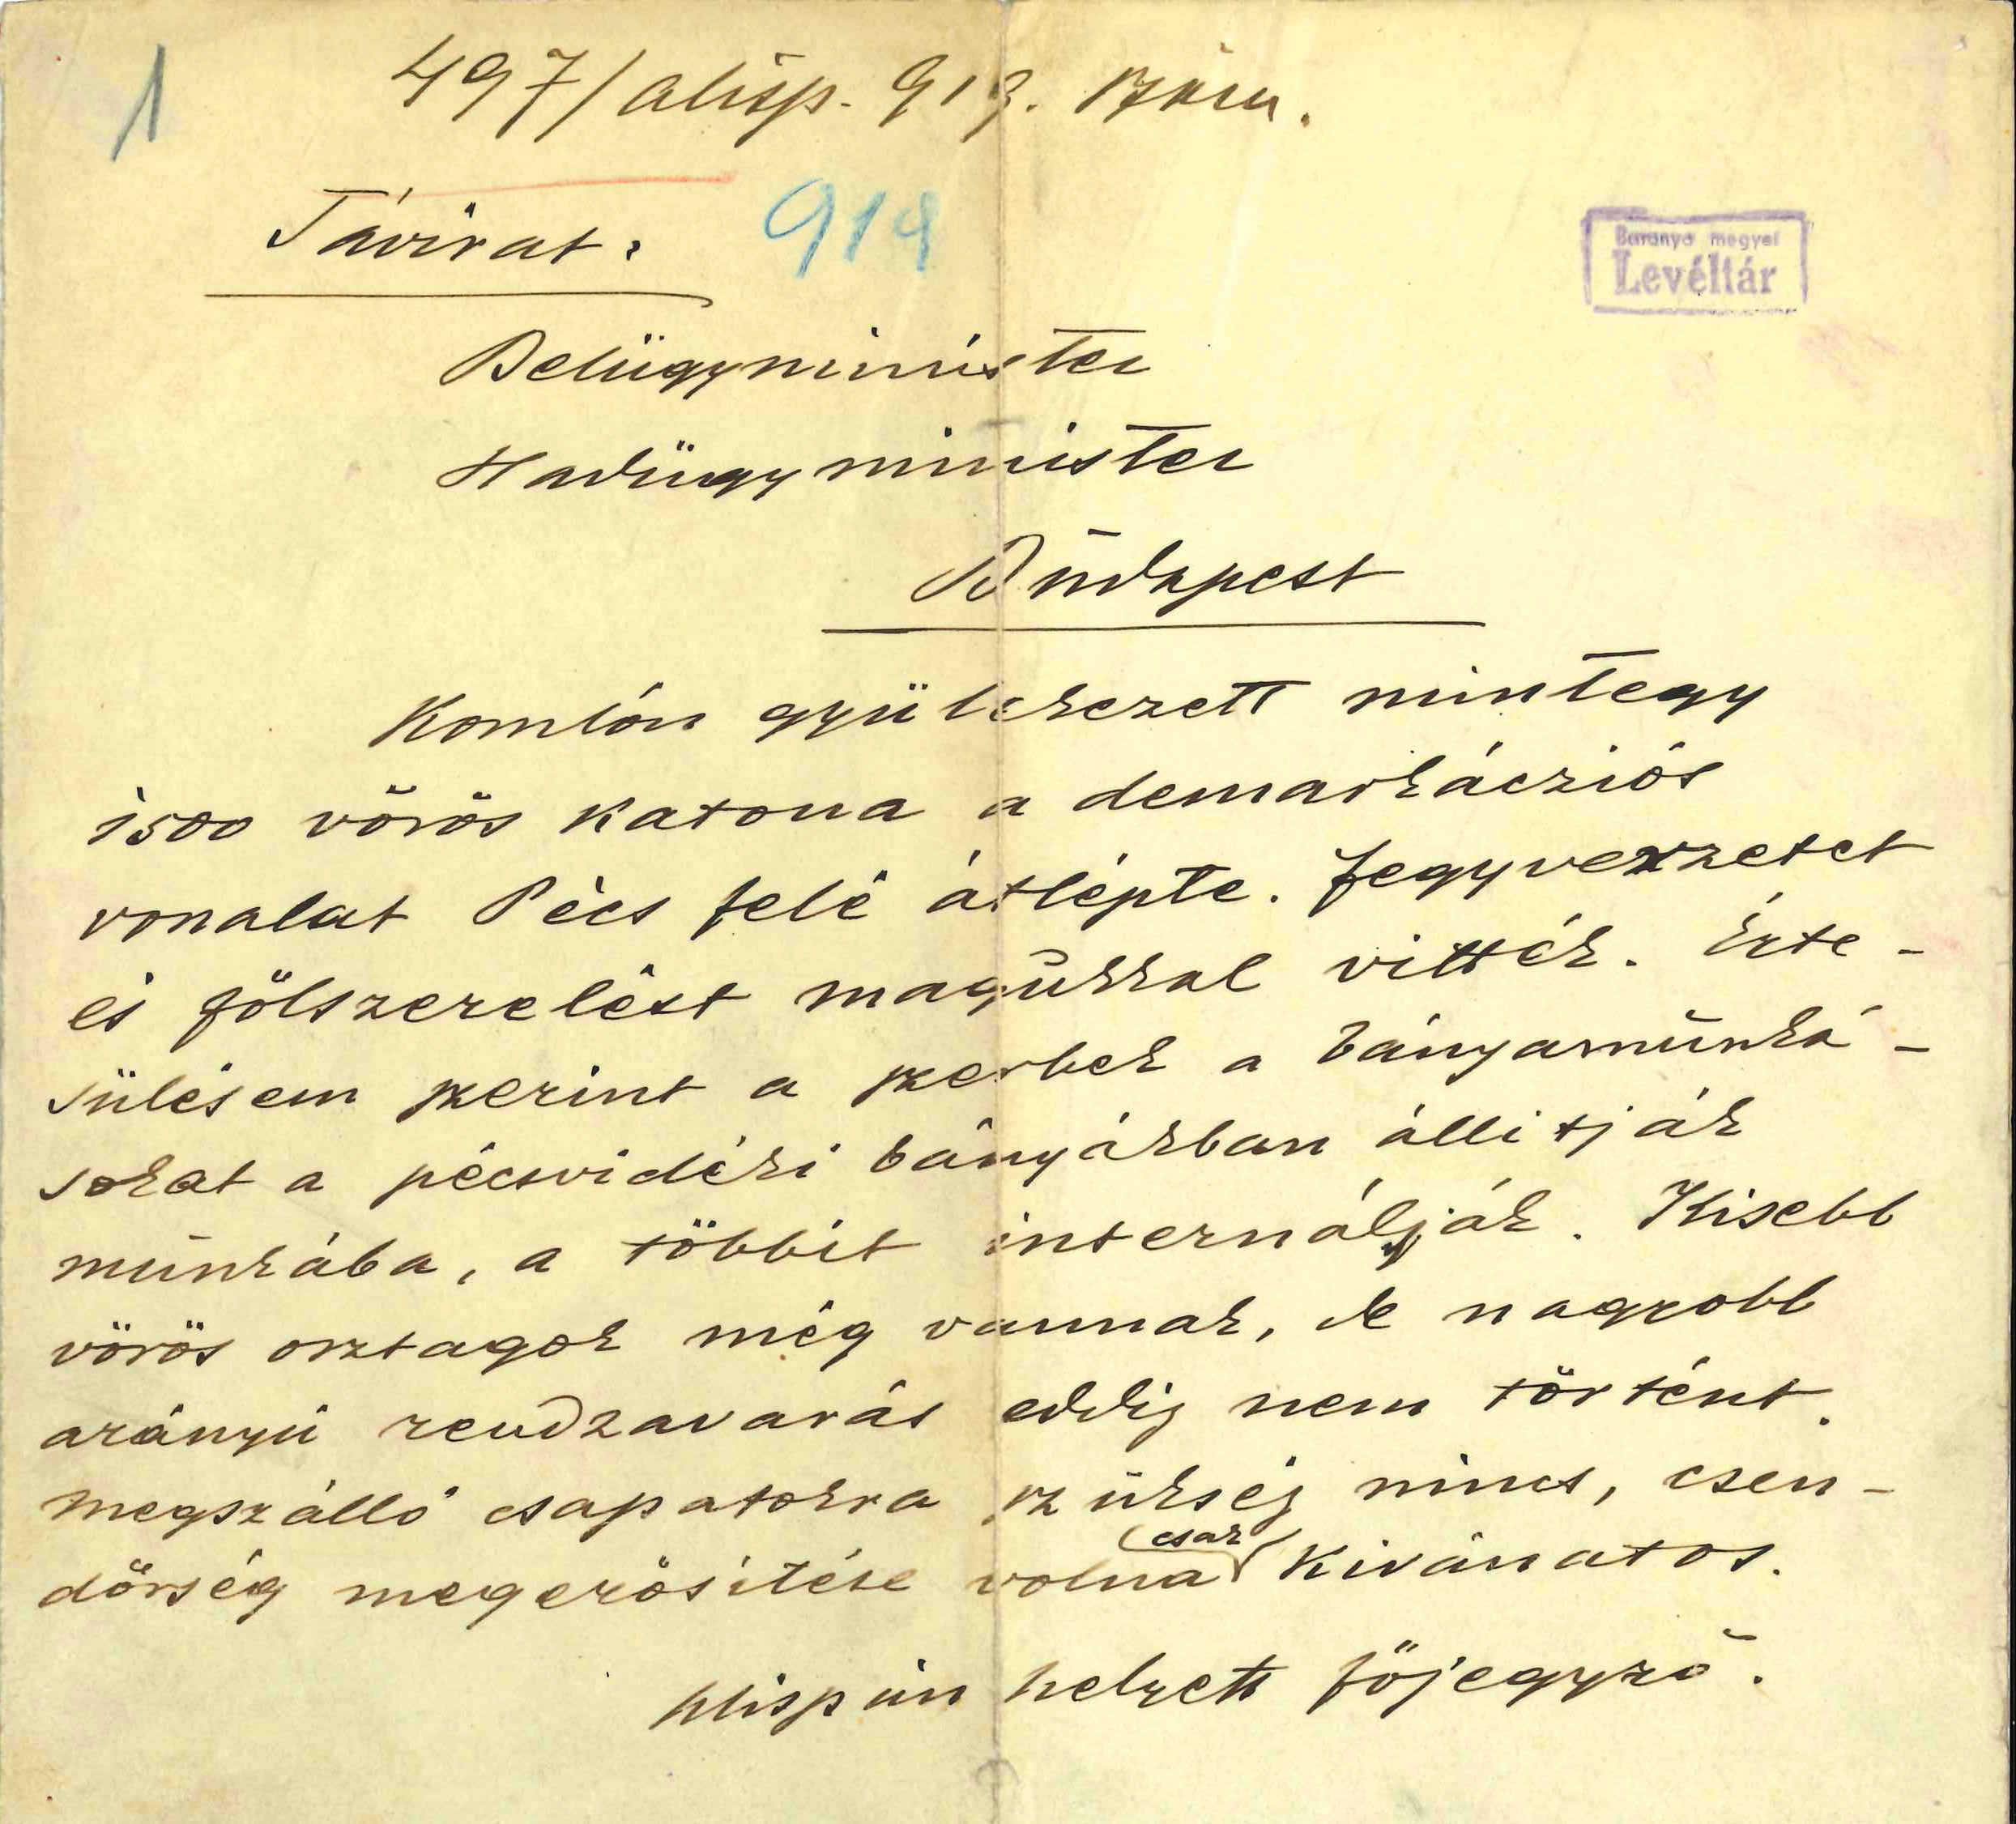 1
497/alisp. 919. szám.
Távirat.
919
Baranya megyei
Levéltár
Belügyminister
Hadügyminister
Budapest
Komlón gyülekezett mintegy
1500 vörös katona a demarkácziós
vonalat Pécs felé átlépte. Fegyverzetet
és fölszerelést magukkal vitték. Érte-
sülésem szerint a szerbek a bányamunká-
sokat a pécsvidéki bányákban állitják
munkába, a többit internálják. Kisebb
vörös osztagok még vannak, de nagyobb
arányú rendzavarás eddig nem történt.
Megszálló csapatokra szükség nincs, csen-
csak
dörség megerösitése volna kivánatos.
Alispán helyett föjegyző.